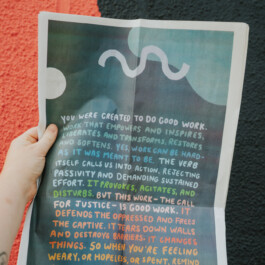 YOU WERE CREATED TO DO GOOD WORK.
WORK THAT EMPOWERS AND INSPIRES,
LIBERATES AND TRANSFORMS, RESTORES
AND SOFTENS. YES, WORK CAN BE HARD-
AS IT WAS MEANT TO BE. THE VERB
ITSELF CALLS US INTO ACTION, REJECTING
PASSIVITY AND DEMANDING SUSTAINED
EFFORT. IT PROVOKES, AGITATES, AND
DISTURBS. BUT THIS WORK - THE CALL
FOR JUSTICE - IS GOOD WORK. IT
DEFENDS THE OPPRESSED AND FREES
THE CAPTIVE. IT TEARS DOWN WALLS
AND DESTROYS BARRIERS. IT CHANGES
THINGS. SO WHEN YOU'RE FEELING
WEARY, OR HOPELESS, OR SPENT, REMIND